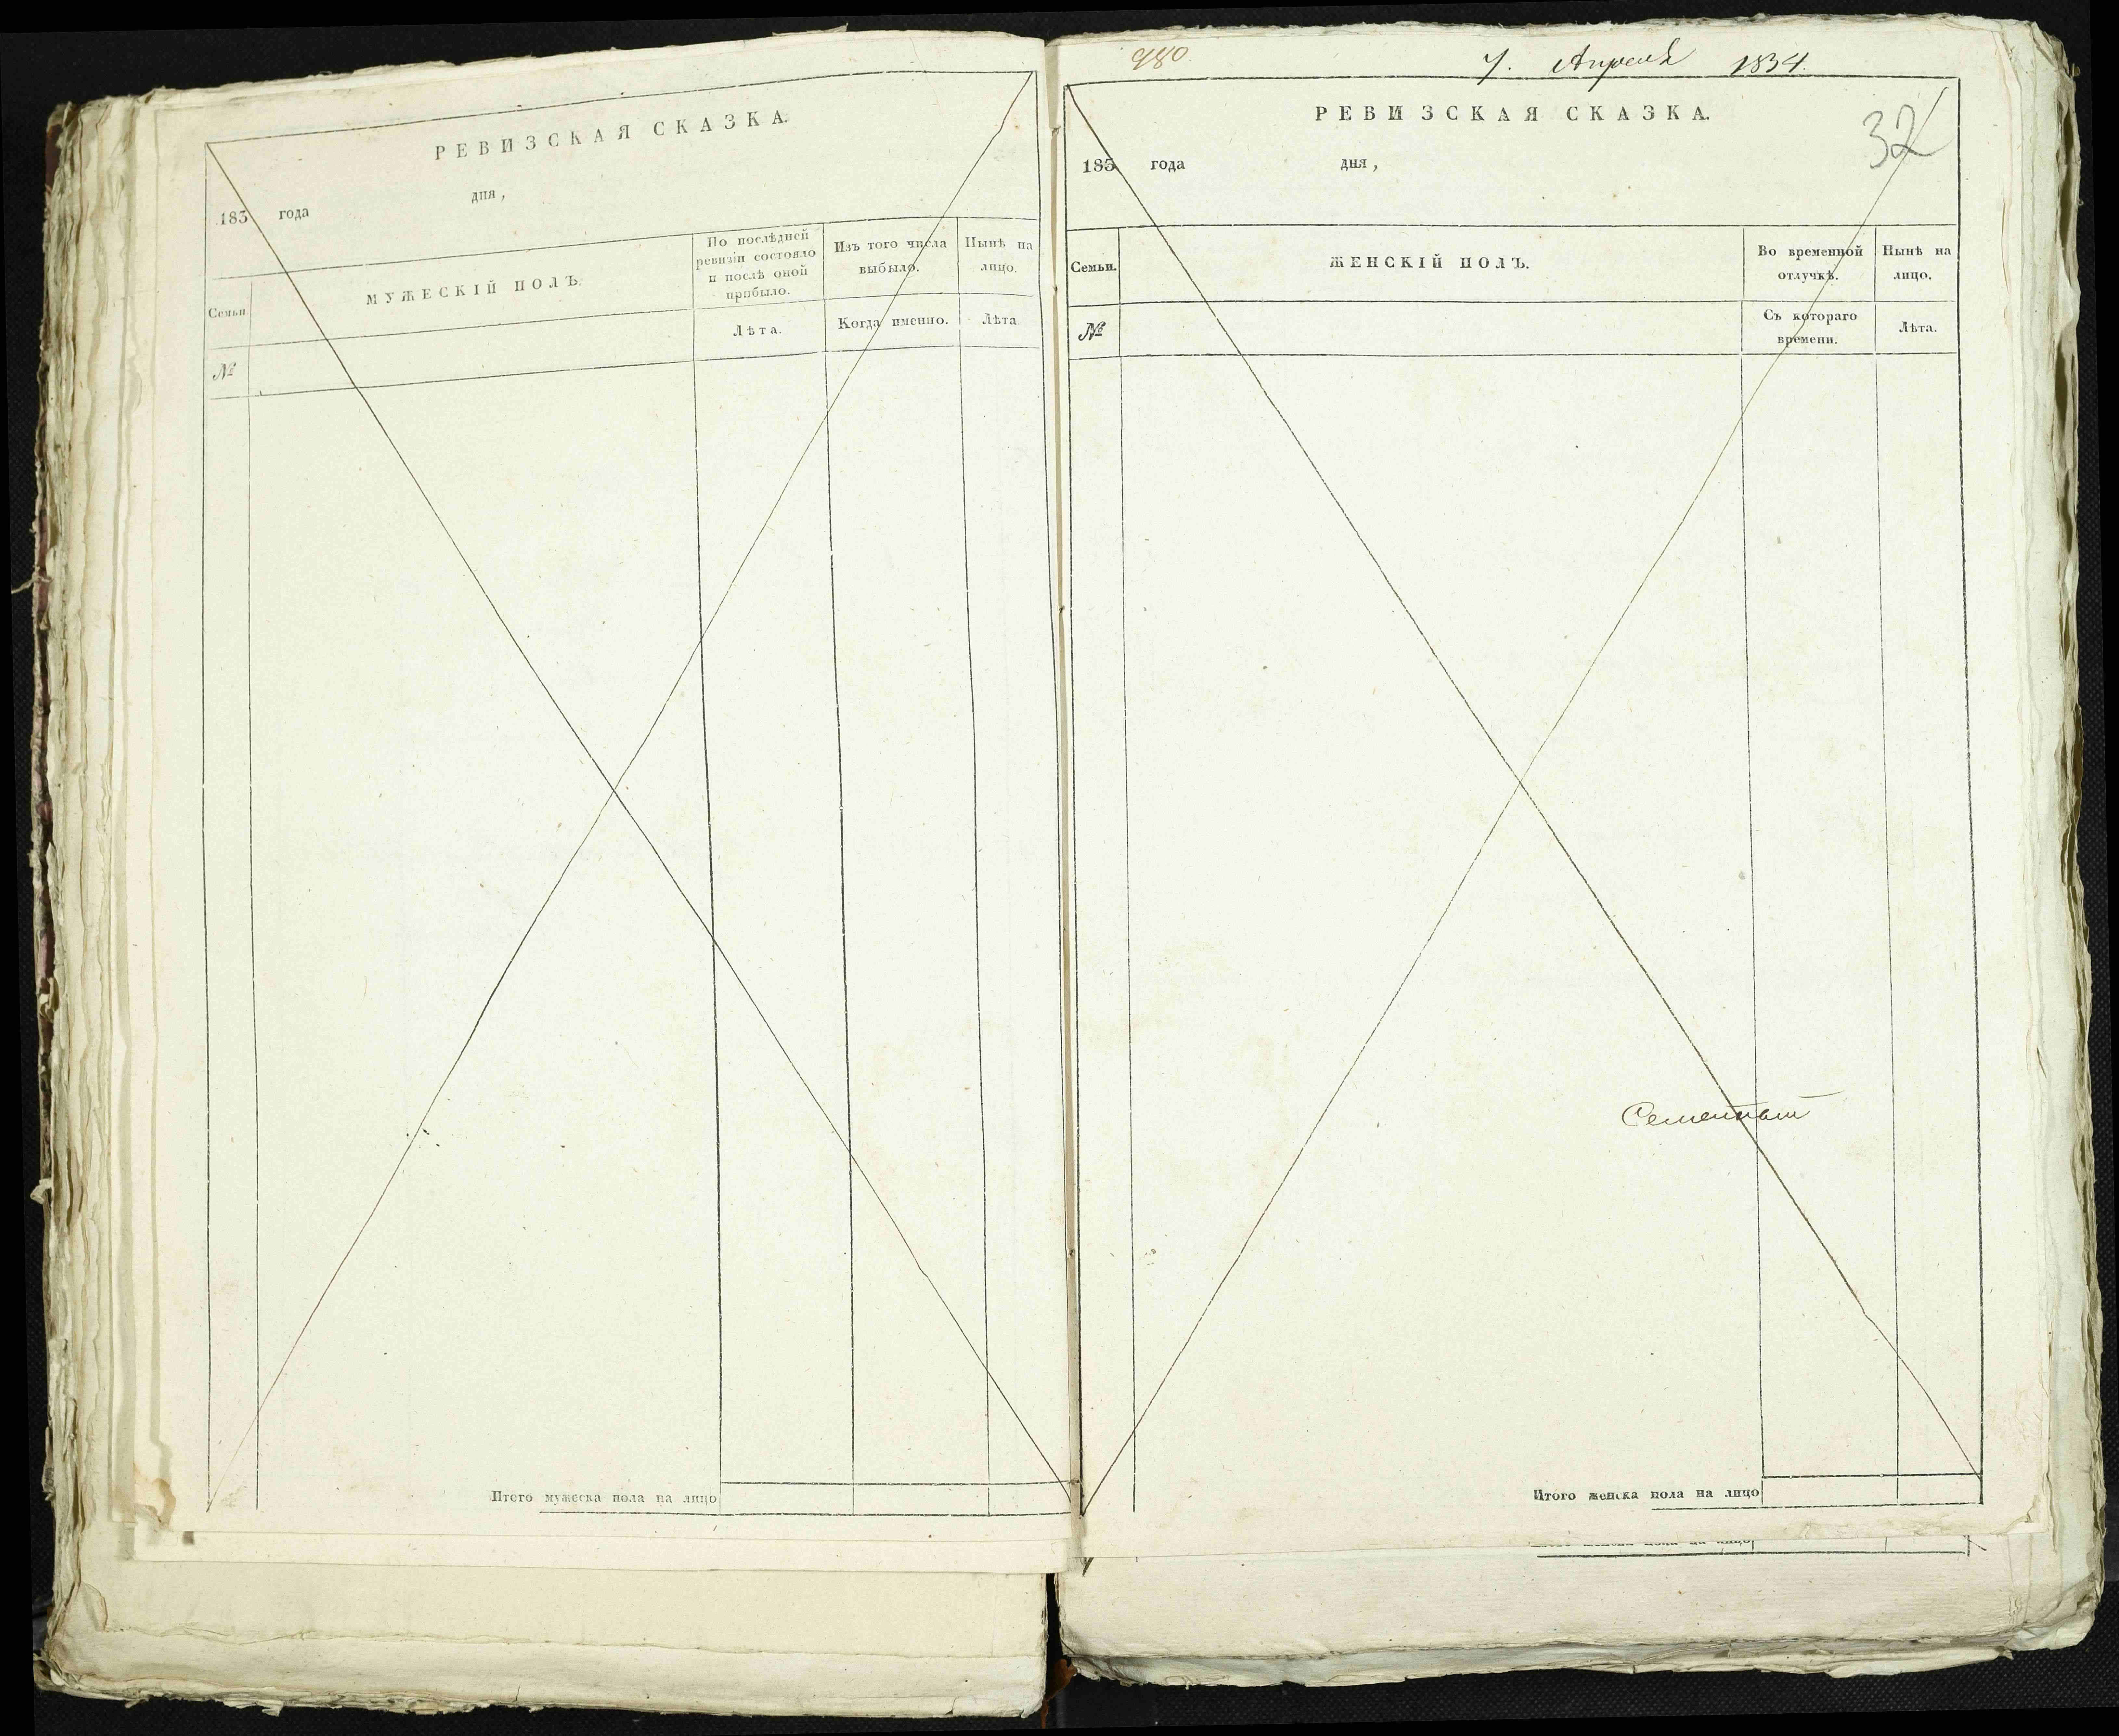 РЕВИЗСКАЯ СКАЗКА.
183 года дня,
Семьи.
МУЖЕСКІЙ ПОЛЪ.
По послѣдней ревизіи состояло и послѣ оной прибыло.
Изъ того числа выбыло.
Нынѣ на лицо.
№
Лѣта.
Когда именно.
Лѣта.
Итого мужеска пола на лицо
980
7. Апреля 1834.
РЕВИЗСКАЯ СКАЗКА.
32
183 года дня,
Семьи.
ЖЕНСКІЙ ПОЛЪ.
Во временной отлучкѣ.
Нынѣ на лицо.
№
Съ котораго времени.
Лѣта.
Итого женска пола на лицо